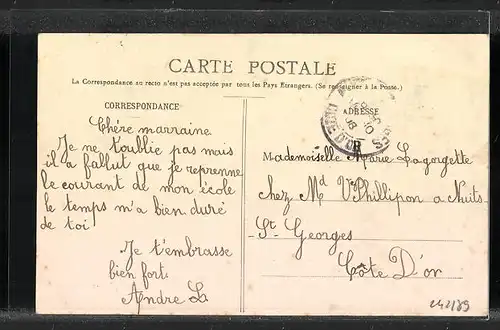 CARTE POSTALE
La Correspondance au recto n'est pas acceptée par tous les Pays Etrangers. (Se renseigner à la Poste.)
CORRESPONDANCE
Chère marraine
Je ne t'oublie pas mais
il a fallut que je reprenne
le courant de mon école
le temps m'a bien duré
de toi
Je t'embrasse
bien fort
Andre L
ADRESSE
Mademoiselle Marie Lagorgette
chez Md Vve Phillipon a Nuits
St Georges
Côte D'or